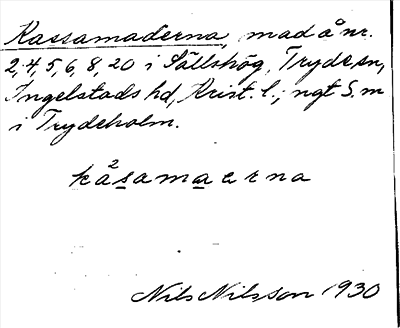 Kassamaderna, mad å nr.
2, 4, 5, 6, 8, 20 i Sällshög, Tryde sn,
Ingelstads hd, Krist. l.; ngt S. m
i Trydeholm.
kå²samaerna
Nils Nilsson 1930